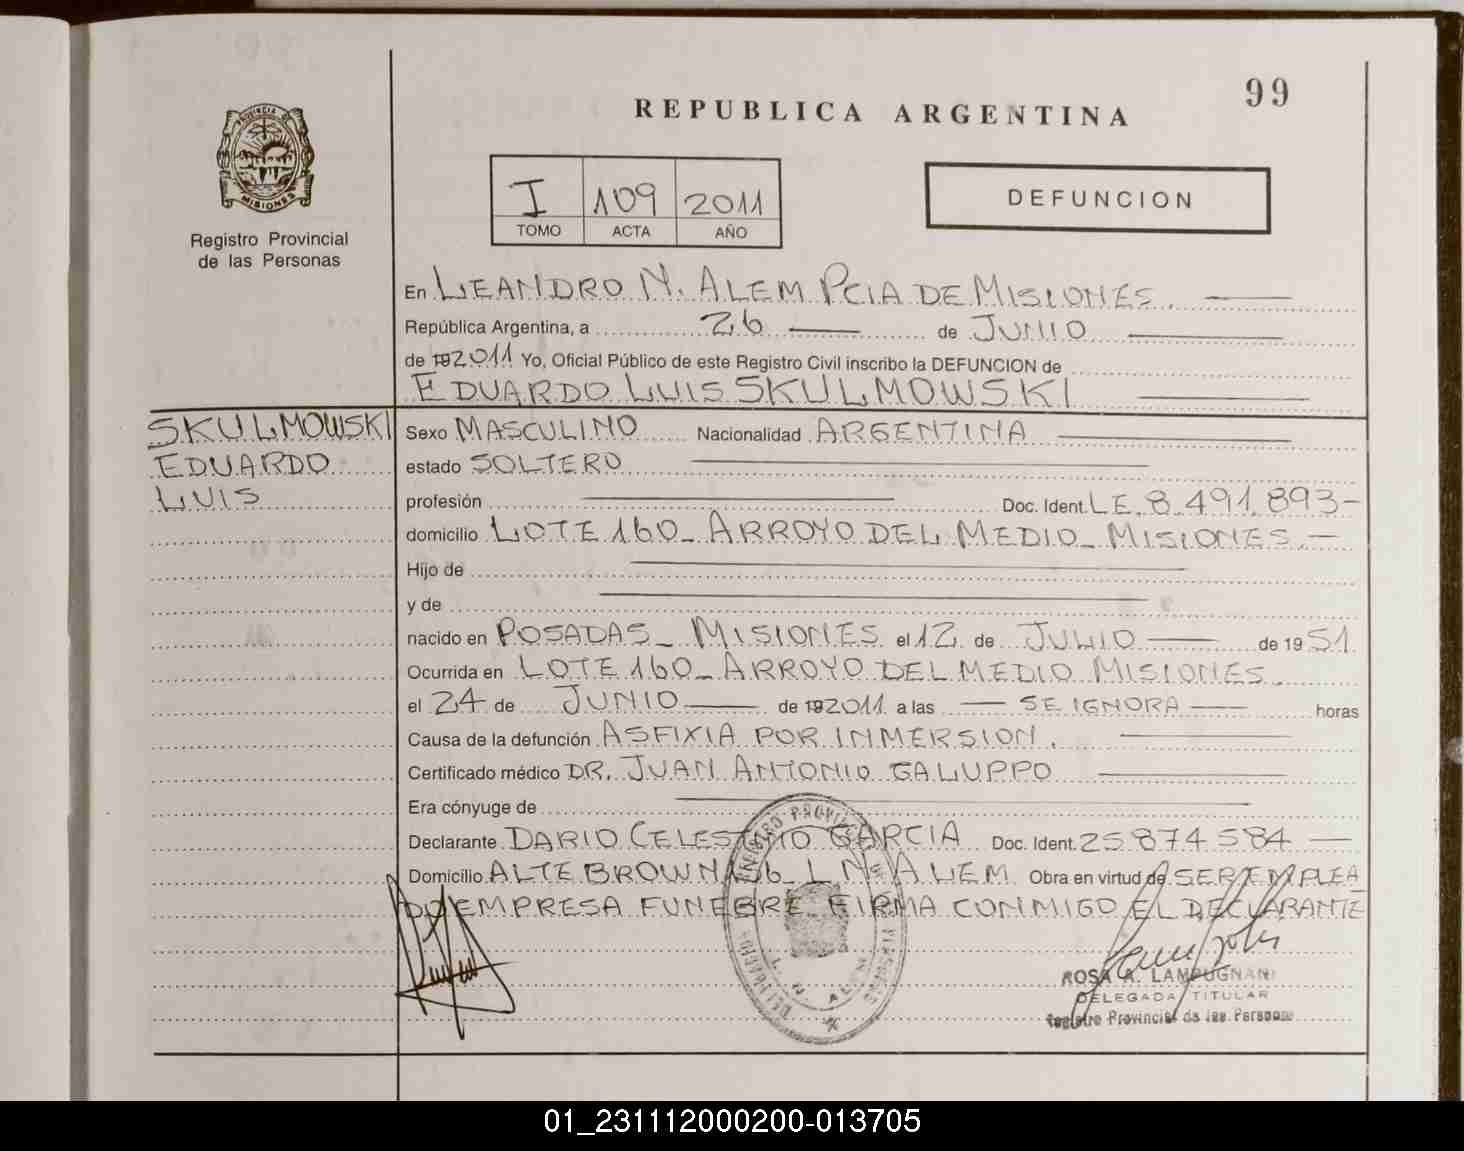 99
REPUBLICA ARGENTINA
PROVINCIA DE
MISIONES
Registro Provincial
de las Personas
I 109 2011
TOMO ACTA AÑO
DEFUNCION
En LEANDRO N. ALEM PCIA DE MISIONES.
República Argentina, a 26 de JUNIO
de 192011 Yo, Oficial Público de este Registro Civil inscribo la DEFUNCION de
EDUARDO LUIS SKULMOWSKI
SKULMOWSKI
EDUARDO
LUIS
Sexo MASCULINO Nacionalidad ARGENTINA
estado SOLTERO
profesión Doc. Ident. LE. 8.491.893-
domicilio LOTE 160_ ARROYO DEL MEDIO_ MISIONES.-
Hijo de
y de
nacido en POSADAS_ MISIONES el 12 de JULIO de 1951.
Ocurrida en LOTE 160_ ARROYO DEL MEDIO MISIONES.
el 24 de JUNIO de 192011 a las SE IGNORA horas
Causa de la defunción ASFIXIA POR INMERSION.
Certificado médico DR. JUAN ANTONIO GALUPPO
Era cónyuge de
Declarante DARIO CELESTINO GARCIA Doc. Ident. 25874584
Domicilio ALTE BROWN L N ALEM Obra en virtud de SER EMPLEA
DO EMPRESA FUNEBRE FIRMA CONMIGO EL DECLARANTE
ROSA A. LAMPUGNANI
DELEGADA TITULAR
Registro Provincial de las Personas
01_231112000200-013705